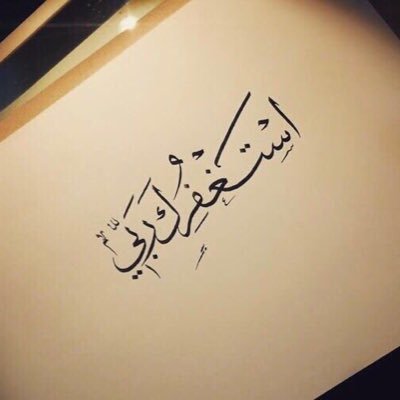 أستغفرك ربي